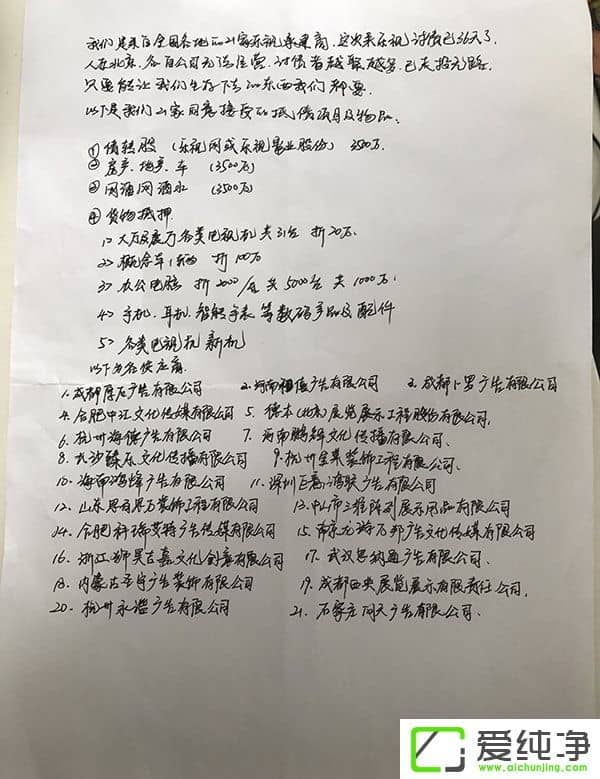 我们是来自全国各地的21家乐视系采商,这次来乐视讨债已36天了,
人在北京,各自公司无法经营,讨债者越聚越多,已走投无路,
只要能让我们生存下去的东西我们都要。
以下是我们21家同意接受的抵债项目及物品:
①债转股(乐视网或乐视影业股份) 3500万
②房产、地产、车 (3500万)
③网酒网酒水 (3500万)
④货物抵押
1>大厅及展厅各类电视机共31台 折20万.
2>概念车1辆 折100万
3>办公电脑 折2000/台 共5000台 共1000万.
4>手机、耳机、智能手表等数码产品及配件
5>各类电视机新机
以下为各供应商
1.成都厚石广告有限公司 2.河南福隆广告有限公司 3.成都卜罗广告有限公司
4.合肥中江文化传媒有限公司 5.标本(北京)展览展示工程股份有限公司,
6.杭州海德广告有限公司 7.河南鹏锦文化传播有限公司、
8.长沙臻乐文化传播有限公司 9.杭州呈果装饰工程有限公司、
10.海南鸿烽广告有限公司 11.深圳巨嵩鸿联广告有限公司
12.山东思奇思万装饰工程有限公司 13.中山市三维阵列展示用品有限公司
14.合肥科瑞艾特广告传媒有限公司 15.南京龙游万邦广告文化传媒有限公司
16.浙江狮昊古嘉文化创意有限公司 17.武汉思纳通广告有限公司、
18.内蒙古圣宇广告装饰有限公司 19.成都西央展览展示有限责任公司,
20.杭州永谐广告有限公司 21.石家庄问天广告有限公司、
爱纯净
www.aichunjing.com